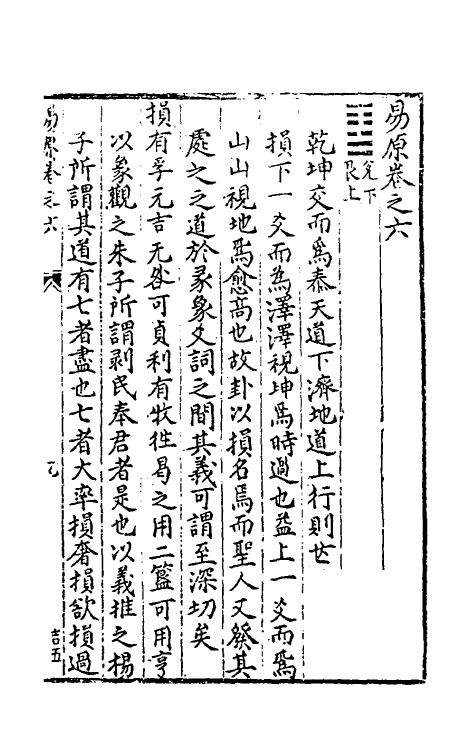 易原卷之六
䷨兊下艮上
乾坤交而爲泰天道下濟地道上行則世
損下一爻而為澤澤視坤爲時過也益上一爻而爲
山山視地爲愈高也故卦以損名焉而聖人又繇其
處之之道於彖象爻詞之間其義可謂至深切矣
損有孚元吉无咎可貞利有攸徃曷之用二簋可用亨
以象觀之朱子所謂剥民奉君者是也以義推之楊
子所謂其道有七者盡也七者大率損奢損欲損過
易原卷之六
吉五